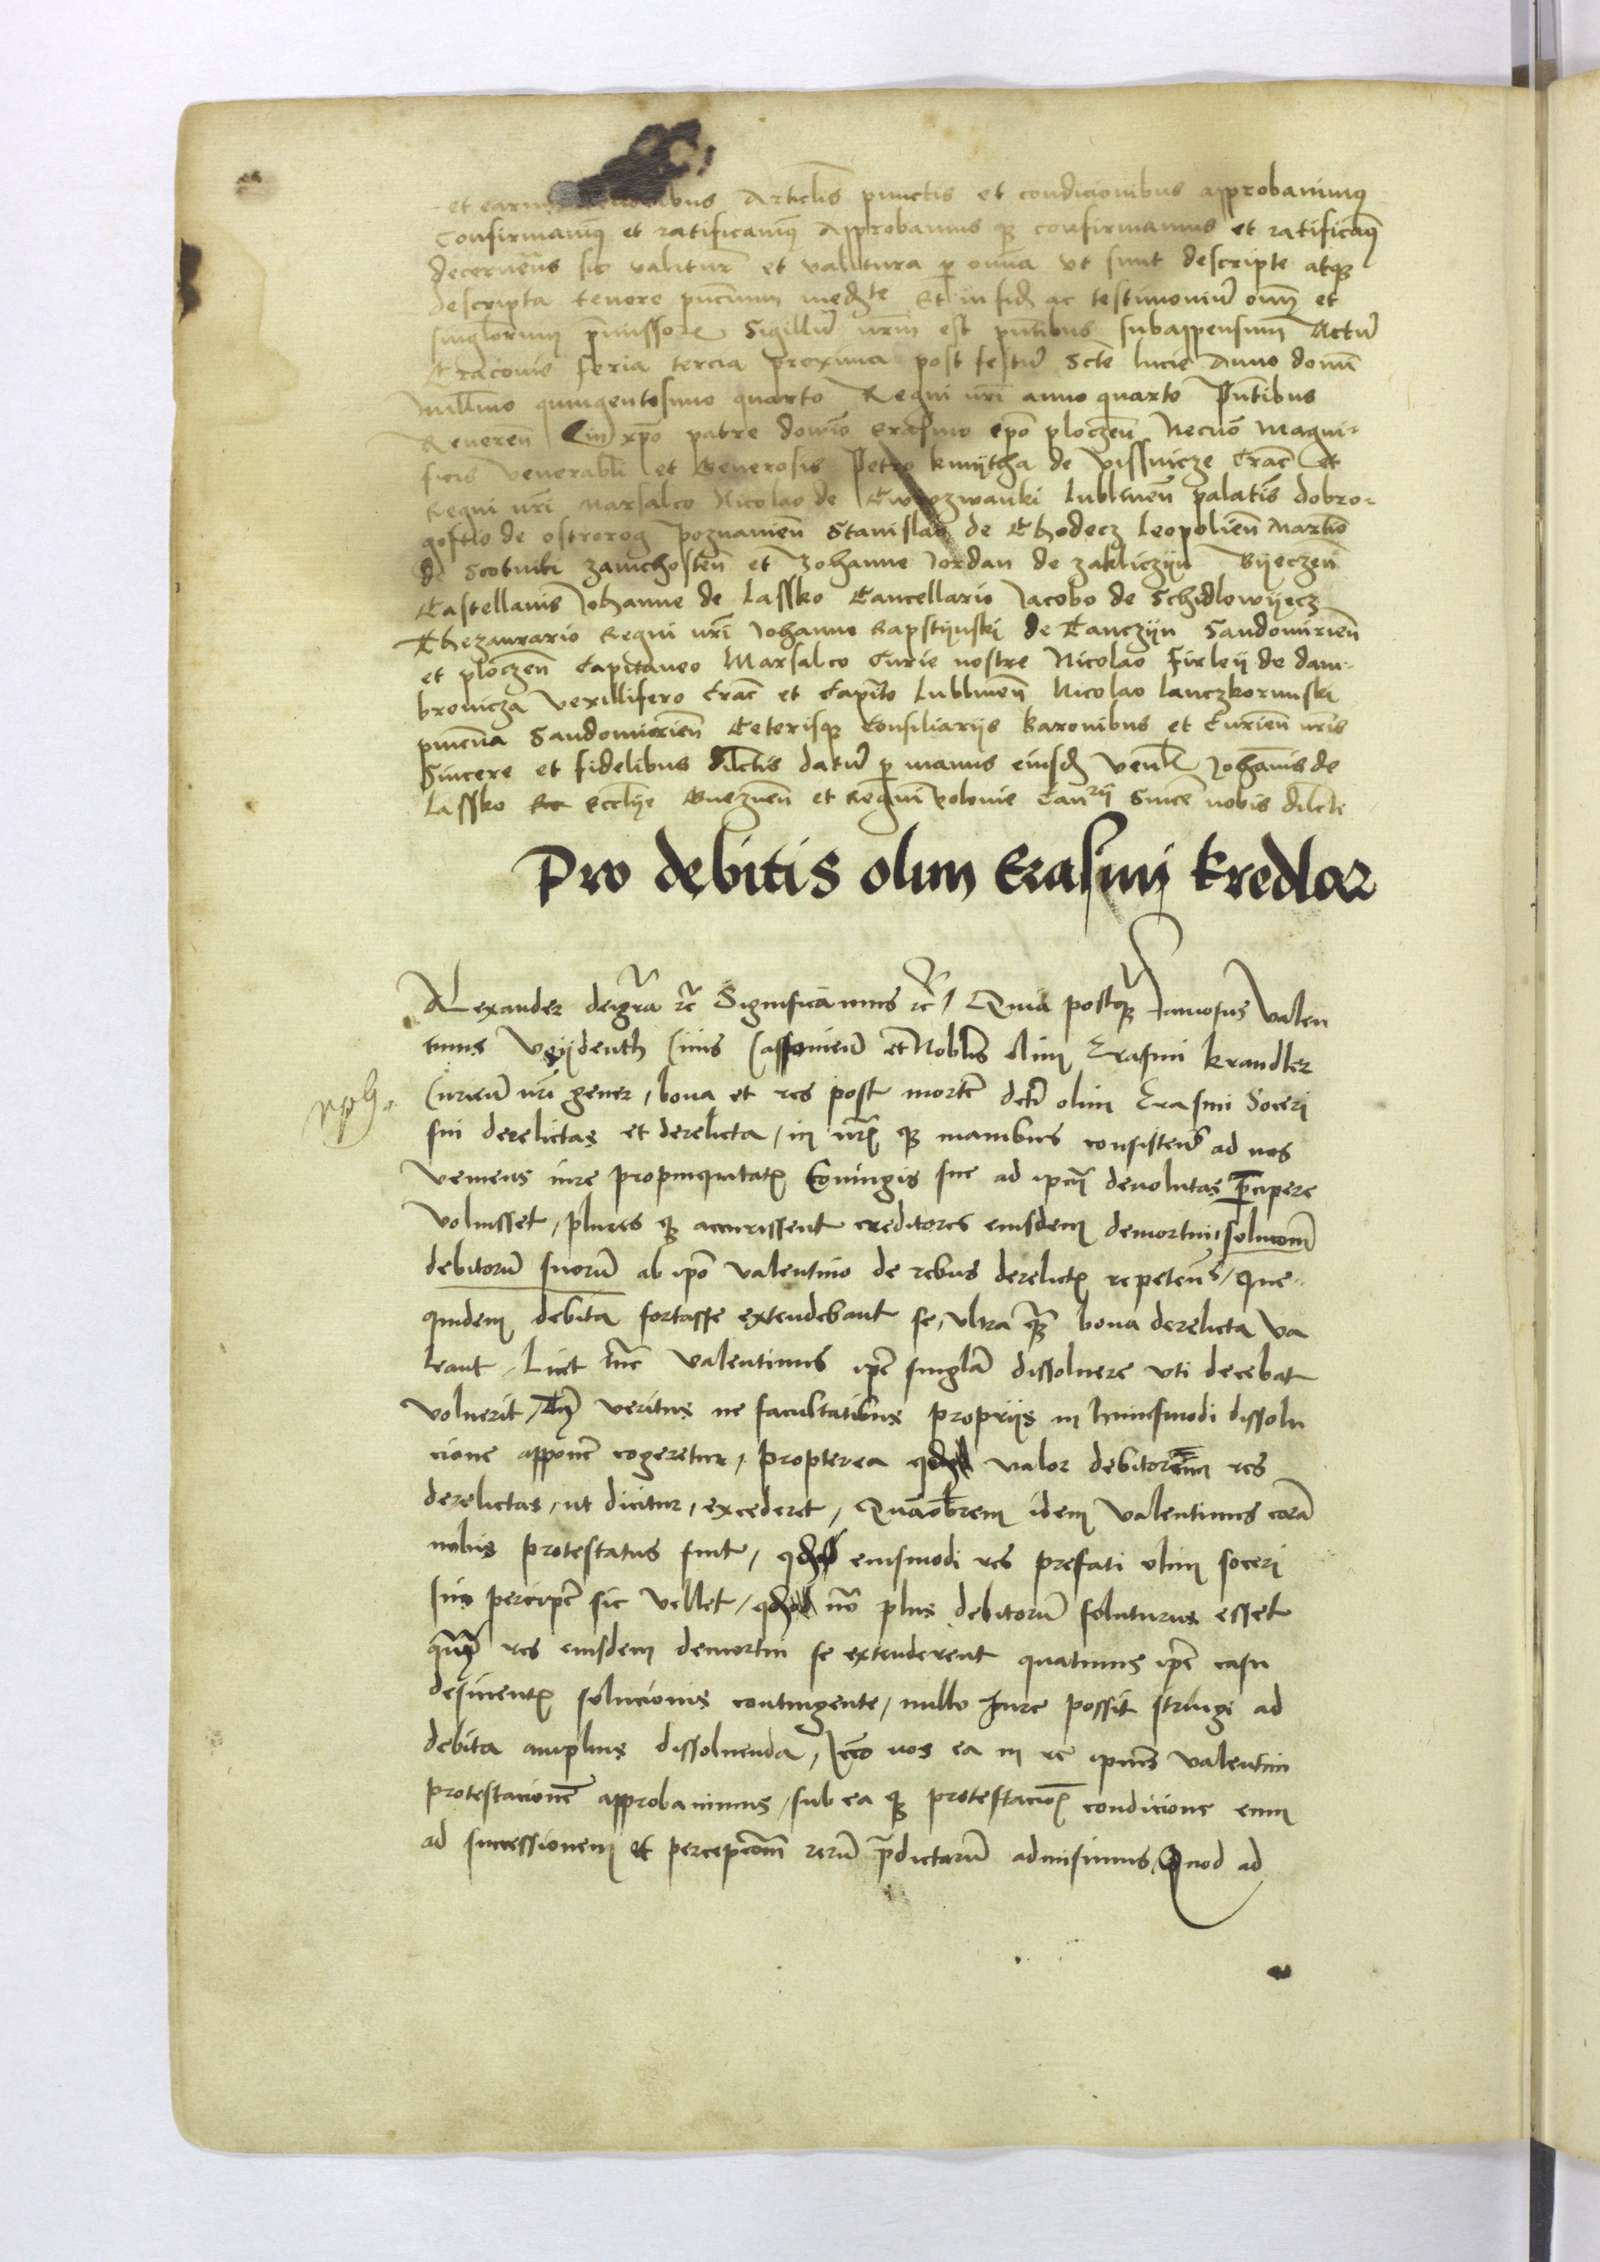 et earum omnibus Articlis punctis et condicionibus approbavimus
Confirmavimus et ratificavimus Approbamus que confirmamus et ratificamus
decernentes sic valitur et valitura per omnia ut sunt descripte atque
descripta tenore pncium medte Et in fidem ac testimonium omnium et
singlorum premissorum Sigillum nrm est pntibus subappensum Actum
Cracovie feria tercia proxima post festum Scte lucie Anno domini
millmo quingentesimo quarto Regni nri anno quarto Pntibus
Reveren in xpo patre domino Erasmo epo ploczen Necno Magni-
ficis venerabli et Generosis Petro kmytha de vissnicze Crac et
Regni nri Marsalco Nicolao de Cwrozwanki lublinen palatis dobro-
gostio de ostrorog poznanien Stanislao de Chodecz leopolien Martino
de Scotniki zawichosten et Johanne Jordan de zakliczyn Byeczen
Castellanis Johanne de lassko Cancellario Jacobo de Schidlowyecz
Thezaurario Regni nri Johanne Rapstynski de Tanczyn Sandomirien
et ploczen Capitaneo Marsalco Curie nostre Nicolao Firley de dam-
browicza vexillifero Crac et Capito lublinen Nicolao lanczkorunski
pincerna Sandomirien Ceterisque Consiliariis Baronibus et Curien nris
Sincere et fidelibus dilctis datum per manus eiusdem venlis Johannis de
lassko Ecclie Gneznen et Regni polonie Canrij Since nobis dilcte
Pro debitis olim Erasmi kredlar
Alexander dei gra etc Significamus etc / Quia postque famosus Valen
tinus Veydenth Civis Cassovien et Noblis olim Erasmi krandler
Curien nri gener, bona et res post mortem dcti olim Erasmi Soceri
sui derelictas et derelicta, in nris que manibus consisten ad nos
veniens iure propinquitatis Coniugis sue ad ipm devolutas percipere
voluisset, plures que accurissent creditores eiusdem demortui, solucionem
debitorum suorum ab ipo valentino de rebus derelictis repeten, Que
quidem debita fortasse extendebant se, ultra que bona derelicta va
leant, Licet tunc valentinus ipe singla dissolvere uti decebat
voluerit, Tamen veritus ne facultatibus propriis in huiusmodi dissolu
cione apponere cogeretur, propterea quod valor debitorum res
derelictas, ut dicitur, excederet, Quamobrem idem Valentinus coram
nobis protestatus fuit, quod eiusmodi res prefati olim soceri
sui percipere sic vellet, quod non plus debitorum soluturus esset
quam res eiusdem demortui se extenderent quatinus ipe casu
desinentis solucionis contingente, nullo Jure possit stringi ad
debita amplius dissolvenda, Jcco nos ea in re ipius valentini
protestacionem approbavimus, sub ea que protestacionis condicione eum
ad successionem et percepcionem rerum predictarum admisimus, Quod ad